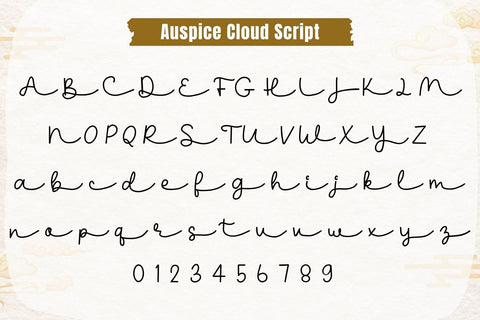 Auspice Cloud Script
A B C D E F G H I J K L M
N O P Q R S T U V W X Y Z
a b c d e f g h i j k l m
n o p q r s t u v w x y z
0 1 2 3 4 5 6 7 8 9